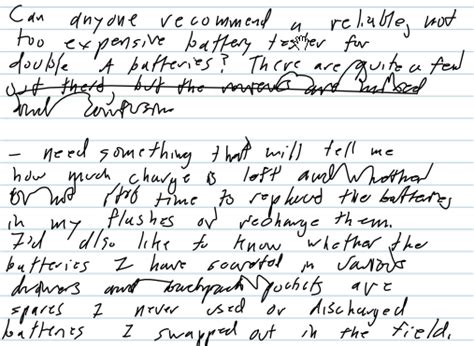 Can anyone recommend a reliable, not
too expensive battery tester for
double A batteries? There are quite a few
out there, but the reviews are mixed
and confusion
- need something that will tell me
how much charge is left and whether
or not it's time to replace the batteries
in my flashes or recharge them.
I'd also like to know whether the
batteries I have scattered in various
drawers and backpack pockets are
spares I never used or discharged
batteries I swapped out in the field.